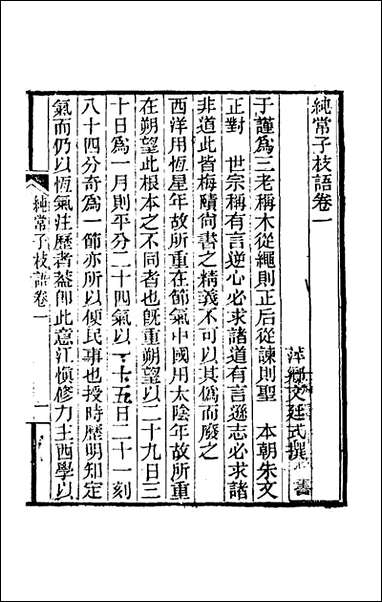 純常子枝語卷一
萍鄉文廷式撰
于謹為三老稱木從繩則正后從諫則聖　本朝朱文
正對　世宗稱有言逆心必求諸道有言遜志必求諸
非道此皆梅賾尚書之精義不可以其偽而廢之
西洋用恆星年故所重在節氣中國用太陰年故所重
在朔望此根本之不同者也既重朔望以二十九日三
十日為一月則平分二十四氣以一十五日二十一刻
八十四分奇為一節亦所以便民事也授時歷明知定
氣而仍以恆氣注歷者葢即此意江慎修力主西學以
純常子枝語卷一
一